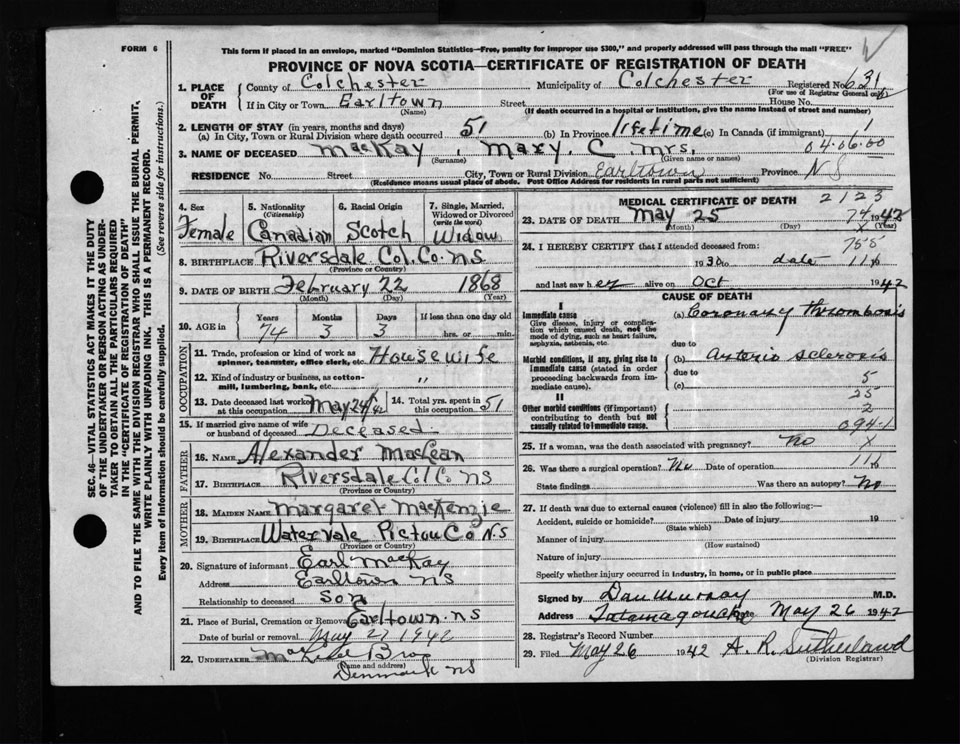 FORM 6
This form if placed in an envelope, marked "Dominion Statistics—Free, penalty for improper use $300," and properly addressed will pass through the mail "FREE"
PROVINCE OF NOVA SCOTIA—CERTIFICATE OF REGISTRATION OF DEATH
1. PLACE OF DEATH County of Colchester Municipality of Colchester Registered No. 631
(For use of Registrar General only)
If in City or Town Earltown Street House No.
(Name) (If death occurred in a hospital or institution, give the name instead of street and number)
2. LENGTH OF STAY (in years, months and days)
(a) In City, Town or Rural Division where death occurred 51 (b) In Province lifetime (c) In Canada (if immigrant)
3. NAME OF DECEASED MacKay, Mary. C Mrs. 04.06.00
(Surname) (Given name or names)
RESIDENCE No. Street City, Town or Rural Division Earltown Province N S
(Residence means usual place of abode. Post Office Address for residents in rural parts not sufficient)
4. Sex Female
5. Nationality (Citizenship) Canadian
6. Racial Origin Scotch
7. Single, Married, Widowed or Divorced (write the word) Widow
8. BIRTHPLACE Riversdale Col. Co. N S
(Province or Country)
9. DATE OF BIRTH February 22 1868
(Month) (Day) (Year)
10. AGE in Years Months Days If less than one day old
74 3 3 hrs. or min.
OCCUPATION
11. Trade, profession or kind of work as spinner, teamster, office clerk, etc. Housewife
12. Kind of industry or business, as cotton-mill, lumbering, bank, etc. "
13. Date deceased last worked at this occupation May 24/42 14. Total yrs. spent in this occupation 51
15. If married give name of wife or husband of deceased Deceased
FATHER
16. NAME Alexander MacLean
17. BIRTHPLACE Riversdale Col Co NS
(Province or Country)
MOTHER
18. MAIDEN NAME Margaret MacKenzie
19. BIRTHPLACE Watervale Pictou Co N.S
(Province or Country)
20. Signature of informant Earl MacKay
Address Earltown NS
Relationship to deceased Son
21. Place of Burial, Cremation or Removal Earltown. NS
Date of burial or removal May 27 1942
22. UNDERTAKER Bros
(Name and address)
Denmark NS
MEDICAL CERTIFICATE OF DEATH 2123
23. DATE OF DEATH May 25 74 1942
(Month) (Day) X (Year)
24. I HEREBY CERTIFY that I attended deceased from: 755
19 30 to date 11
and last saw her alive on Oct 1942
CAUSE OF DEATH
I
Immediate cause
Give disease, injury or complication which caused death, not the mode of dying, such as heart failure, asphyxia, asthenia, etc.
(a) Coronary Thrombosis
due to
Morbid conditions, if any, giving rise to immediate cause (stated in order proceeding backwards from immediate cause).
(b) Arterio sclerosis
due to 5
(c)
25
II
Other morbid conditions (if important) contributing to death but not causally related to immediate cause.
2
094.1
25. If a woman, was the death associated with pregnancy? No X
26. Was there a surgical operation? No Date of operation 19
State findings Was there an autopsy? No
27. If death was due to external causes (violence) fill in also the following:—
Accident, suicide or homicide? Date of injury 19
(State which)
Manner of injury
(How sustained)
Nature of injury
Specify whether injury occurred in industry, in home, or in public place
Signed by Dan Murray M.D.
Address Tatamagouche Date May 26 1942
28. Registrar's Record Number
29. Filed May 26 1942 A. R. Sutherland
(Division Registrar)
SEC. 46—VITAL STATISTICS ACT MAKES IT THE DUTY
OF THE UNDERTAKER OR PERSON ACTING AS UNDER-
TAKER TO OBTAIN ALL THE PARTICULARS REQUIRED
IN THE "CERTIFICATE OF REGISTRATION OF DEATH"
AND TO FILE THE SAME WITH THE DIVISION REGISTRAR WHO SHALL ISSUE THE BURIAL PERMIT.
WRITE PLAINLY WITH UNFADING INK. THIS IS A PERMANENT RECORD.
Every item of information should be carefully supplied. (See reverse side for instructions.)